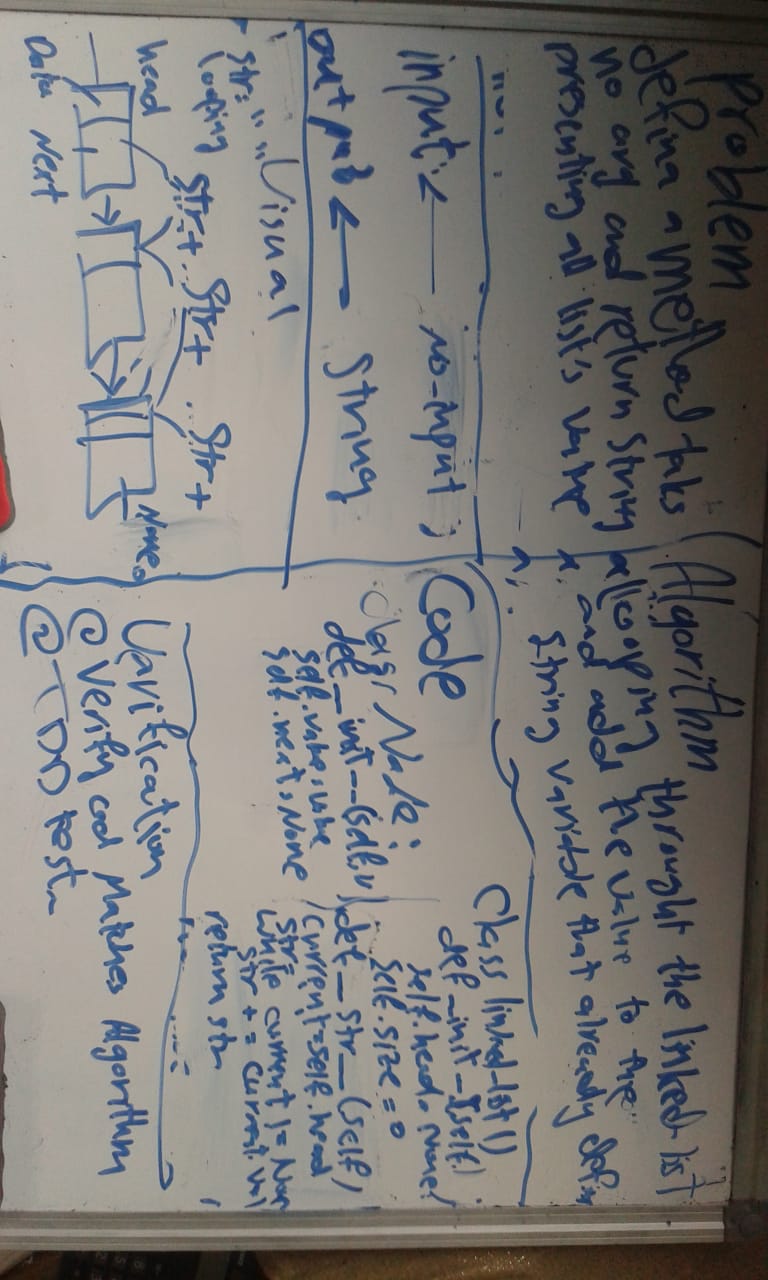 Problem
define a method taks
no arg and return string
presenting all list's value
input: ← no-input ;
output ← String
Visual
str= " "
looping
str+ ... str+ ... str+
head
None
Data Next
Algorithm
throught the linked-list
looping
and add the value to the
string variable that already defin
Code
class Node:
def __init__(self,v)
self.value=value
self.next=None
class linked-list()
def __init__(self)
self.head=None
self.size=0
def __str__(self)
current=self.head
str=
while current != Non
str += current.val
return str
Varification
@ Verify cod Matches Algorithm
@ TDD test